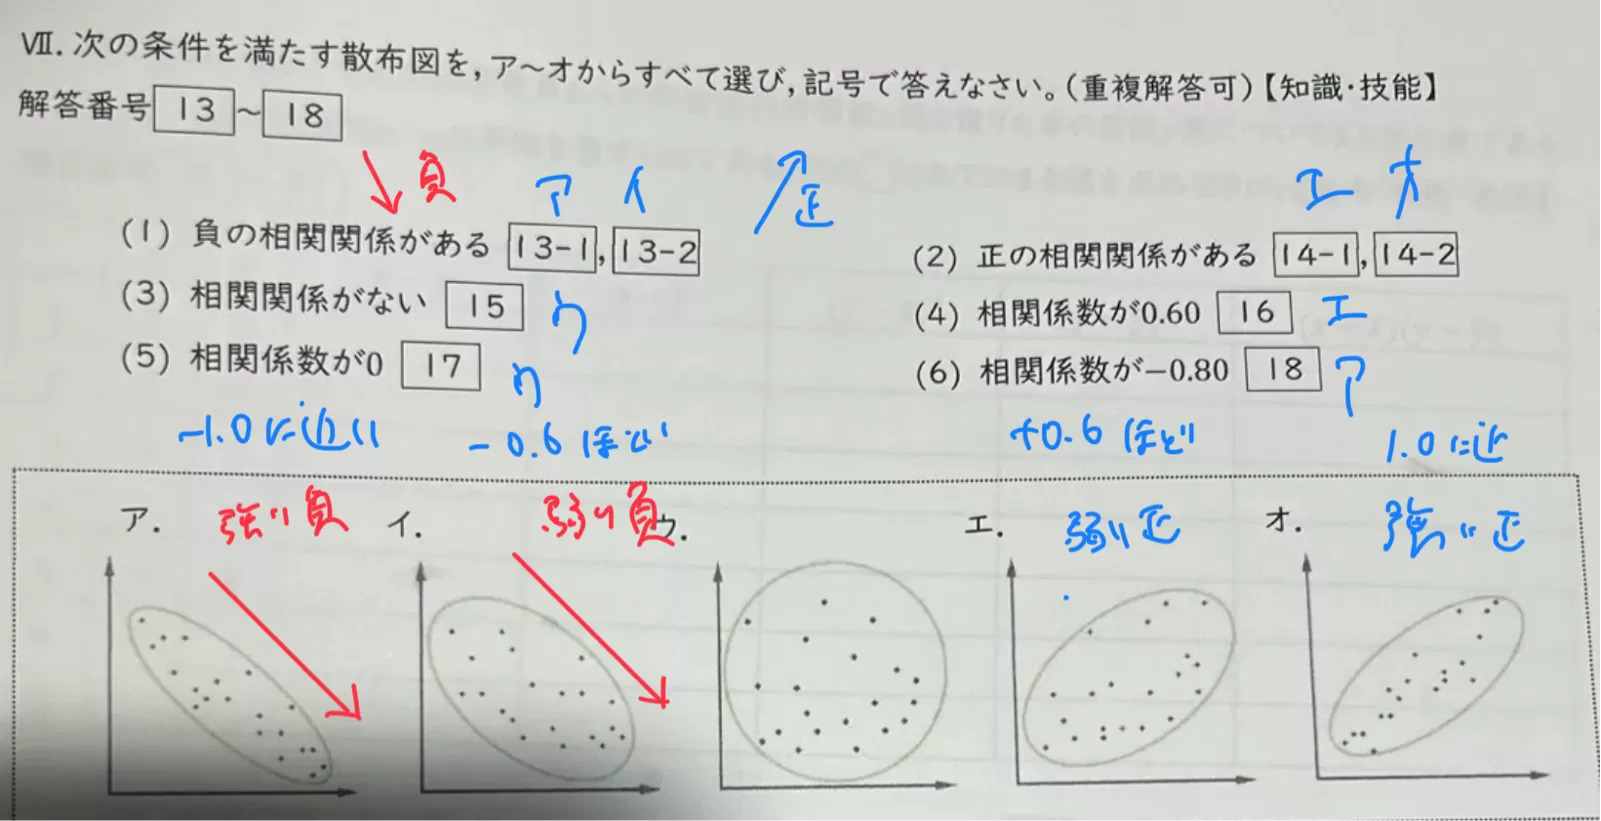 Ⅶ. 次の条件を満たす散布図を, ア～オからすべて選び, 記号で答えなさい。(重複解答可)【知識・技能】
解答番号 13 ～ 18
負 ア イ 正 エ オ
(1) 負の相関関係がある 13-1, 13-2 (2) 正の相関関係がある 14-1, 14-2
(3) 相関関係がない 15 ウ (4) 相関係数が0.60 16 エ
(5) 相関係数が0 17 ウ (6) 相関係数が-0.80 18 ア
-1.0に近い -0.6ほどい +0.6ほど 1.0に近
ア. 強い負 イ. 弱い負 ウ. エ. 弱い正 オ. 強い正